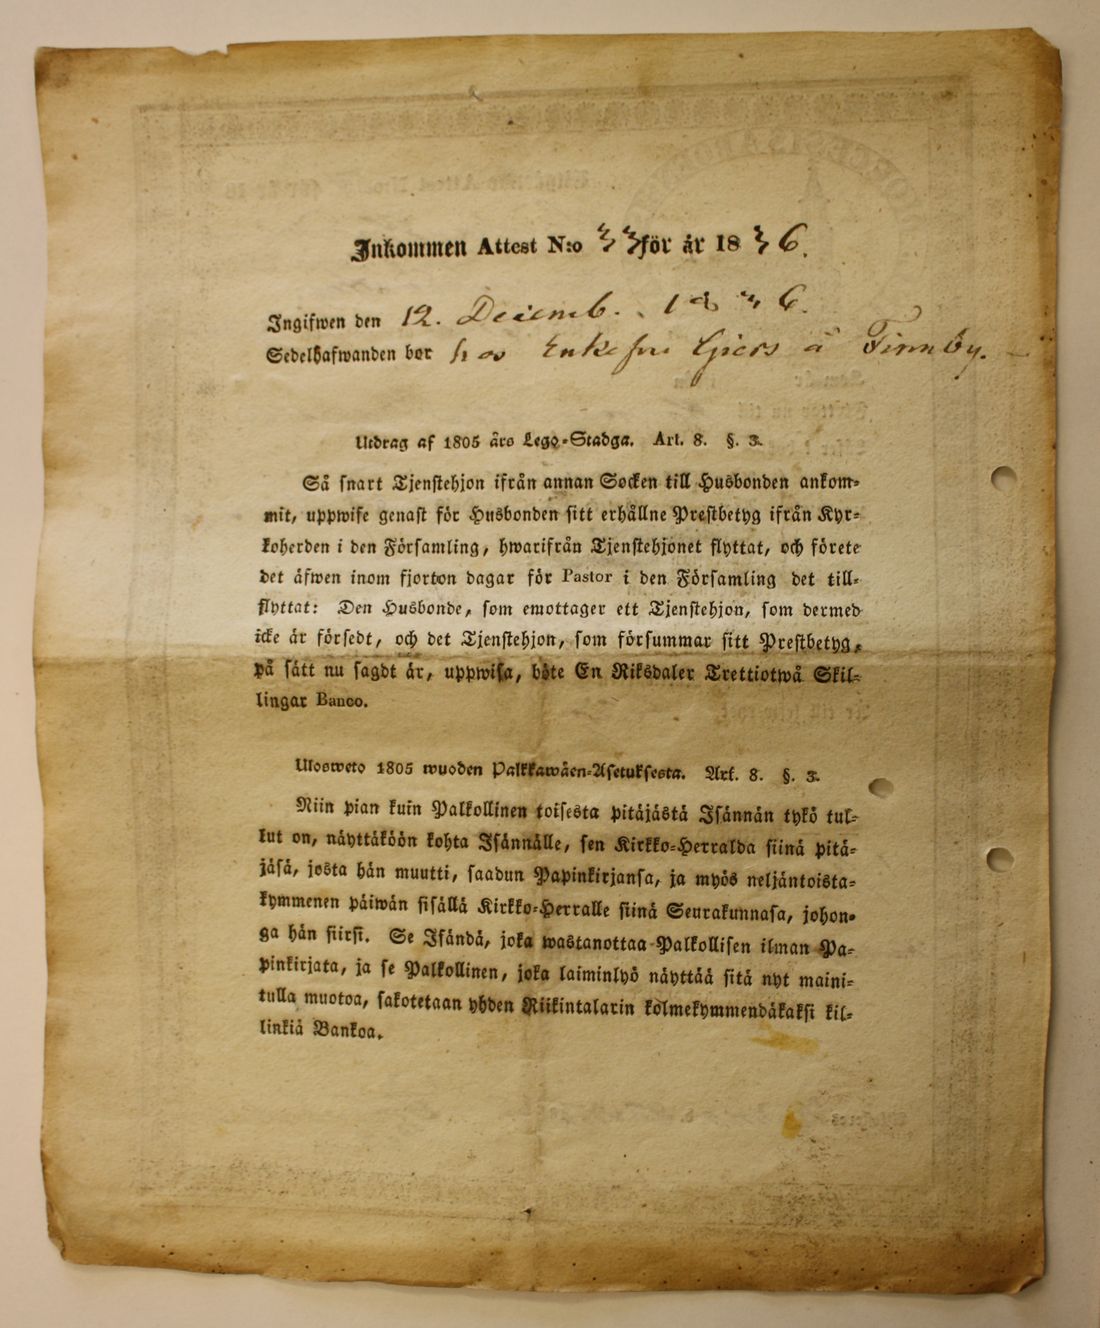 Inkommen Attest N:o 33 för år 1836.
Ingifwen den 12. Decemb. 1836.
Sedelhafwanden bor hos Enkefru Gjers å Finnby.
Utdrag af 1805 års Lego-Stadga. Art. 8. §. 3.
Så snart Tjenstehjon ifrån annan Socken till Husbonden ankom-
mit, uppwise genast för Husbonden sitt erhållne Prestbetyg ifrån Kyr-
koherden i den Församling, hwarifrån Tjenstehjonet flyttat, och förete
det äfwen inom fjorton dagar för Pastor i den Församling det till-
flyttat: Den Husbonde, som emottager ett Tjenstehjon, som dermed
icke är försedt, och det Tjenstehjon, som försummar sitt Prestbetyg,
på sätt nu sagdt är, uppwisa, böte En Riksdaler Trettiotwå Skil-
lingar Banco.
Ulosweto 1805 wuoden Palkkawäen-Asetuksesta. Art. 8. §. 3.
Niin pian kuin Palkollinen toisesta pitäjästä Isännän tykö tul-
lut on, näyttäköön kohta Isännälle, sen Kirkko-Herralda siinä pitä-
jäsä, josta hän muutti, saadun Papinkirjansa, ja myös neljäntoista-
kymmenen päiwän sisällä Kirkko-Herralle siinä Seurakunnasa, johon-
ga hän siirsi. Se Isändä, joka wastanottaa Palkollisen ilman Pa-
pinkirjata, ja se Palkollinen, joka laiminlyö näyttää sitä nyt maini-
tulla muotoa, sakotetaan yhden Riikintalarin kolmekymmendäkaksi kil-
linkiä Bankoa.